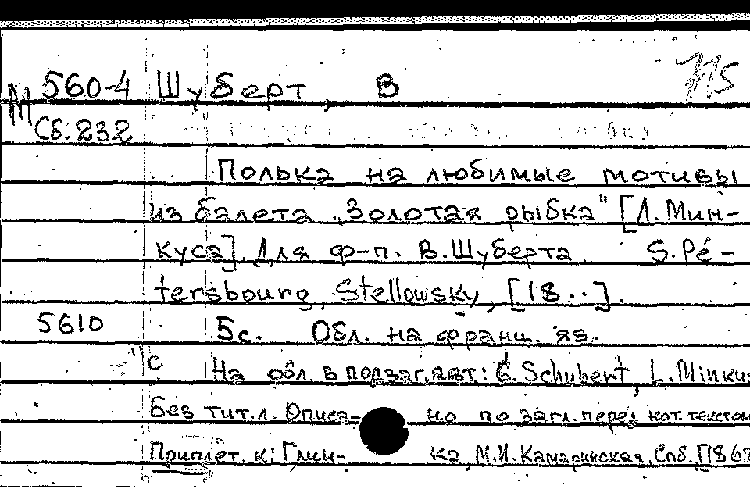 560-4 Шуберт, В
М Сб. 232
Полька на любимые мотивы
из балета "Золотая рыбка" [Л. Мин-
куса]. Для ф-п. В. Шуберта. S. Pé-
tersbourg, Stellowsky, [18..].
5610 5с. Обл. на франц. яз.
С На обл. в подзаг. авт: C. Schubert, L. Minku
Без тит. л. Описа- но по загл. перед нот. текстом
Приплет. к: Глин- ка, М.И. Камаринская. Спб. [186